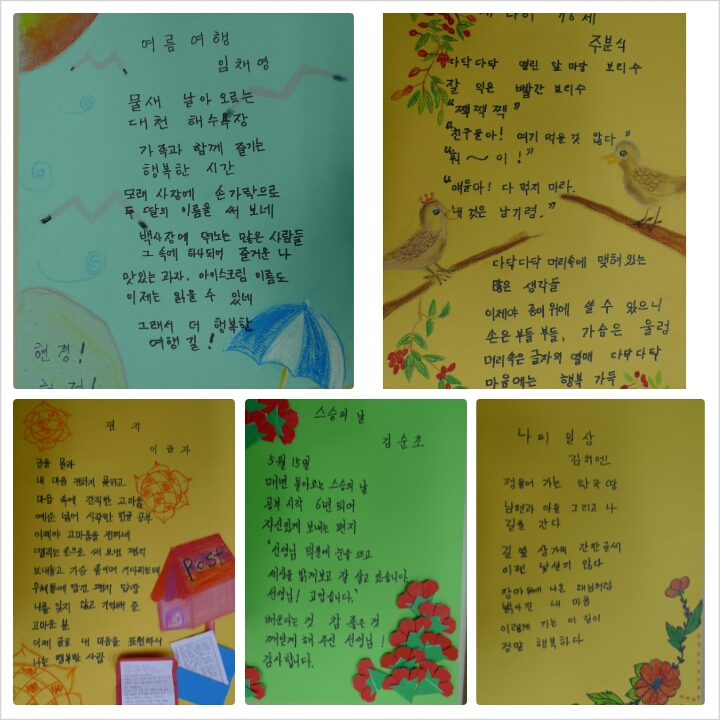 여름 여행
임채영
물새 날아 오르는
대천 해수욕장
가족과 함께 즐기는
행복한 시간
모래 사장에 손가락으로
두 딸의 이름을 써 보네
백사장에 뛰노는 많은 사람들
그 속에 하나되어 즐거운 나
맛있는 과자. 아이스크림 이름도
이제는 읽을 수 있네
그래서 더 행복한
여행길!
현경!
76세
주분식
다닥다닥 열린 앞 마당 보리수
잘 익은 빨간 보리수
"짹짹짹"
"친구들아! 여기 먹을 것 많다."
"휘~이!"
"얘들아! 다 먹지 마라.
내 것은 남기렴."
다닥다닥 머리속에 맺혀있는
많은 생각들
이제야 종이위에 쓸 수 있으니
손은 부들부들, 가슴은 울렁
머리속은 글자의 열매 다닥다닥
마음에는 행복 가득
편지
글을 몰라
내 마음 전하지 못하고
마음 속에 간직한 고마움
예순 넘어 시작한 한글 공부
이제야 고마움을 전하네
떨리는 손으로 써 보낸 편지
우체통에 담긴 편지 답장
나를 잊지 않고 기억해 준
고마운 분
이제 글로 내 마음을 표현하니
나는 행복한 사람
Post
스승의 날
김순초
5월 15일
매년 돌아오는 스승의 날
공부 시작 6년 되어
자신있게 보내는 편지
"선생님 덕분에 눈을 뜨고
세상을 밝게보고 잘 살고 있습니다.
선생님! 고맙습니다."
배운다는 것 참 좋은 것
깨닫게 해 주신 선생님!
감사합니다.
나의 일상
점들어 가는 한국 말
남편과 아들 그리고 나
길을 간다
길 옆 상가의 간판글씨
이젠 낯설지 않다
장마뒤에 나온 해님처럼
밝아진 내 마음
이렇게 가는 이 길이
정말 행복하다